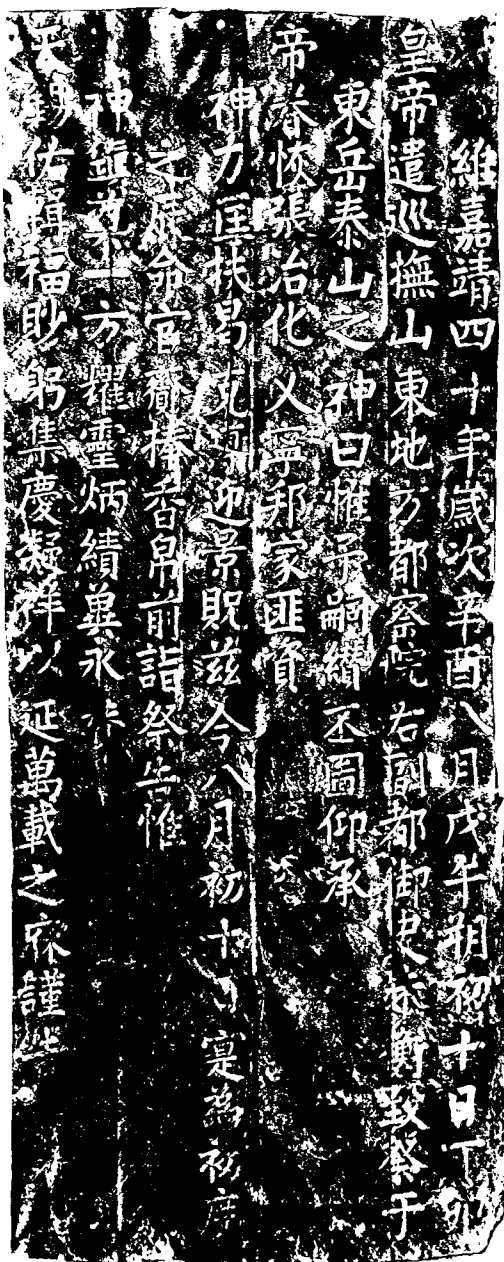 維嘉靖四十年歲次辛酉八月戊午朔初十日丁卯
皇帝遣巡撫山東地方都察院右副都御史衡致祭于
東岳泰山之神曰惟予嗣纘丕圖仰承
帝眷恢張治化乂寧邦家匪資
神力匡扶曷克迎景貺茲今八月初十日寔為初度
之命官捧香帛前詣祭告惟
神鎮一方耀靈炳績冀永
天錫佑福眇躬集慶凝祥以延萬載之謹